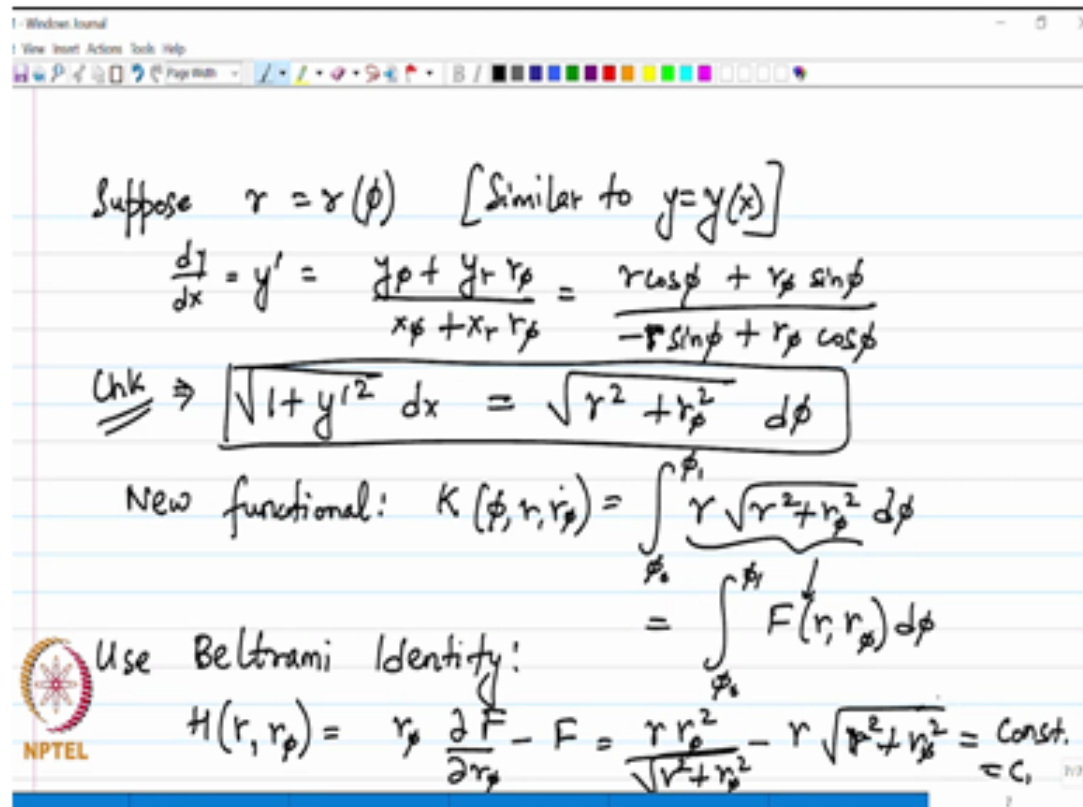 - Windows Journal
View Insert Actions Tools Help
Page Width
B I
Suppose r = r(φ) [Similar to y=y(x)]
dy/dx = y' = (yφ + yr rφ)/(xφ + xr rφ) = (r cosφ + rφ sinφ)/(-r sinφ + rφ cosφ)
Chk ⇒ √(1 + y'²) dx = √(r² + rφ²) dφ
New functional: K(φ, r, rφ) = ∫_φ₀^φ₁ r √(r² + rφ²) dφ
= ∫_φ₀^φ₁ F(r, rφ) dφ
Use Beltrami Identity:
H(r, rφ) = rφ ∂F/∂rφ - F = r rφ²/√(r² + rφ²) - r √(r² + rφ²) = Const.
= C₁
NPTEL